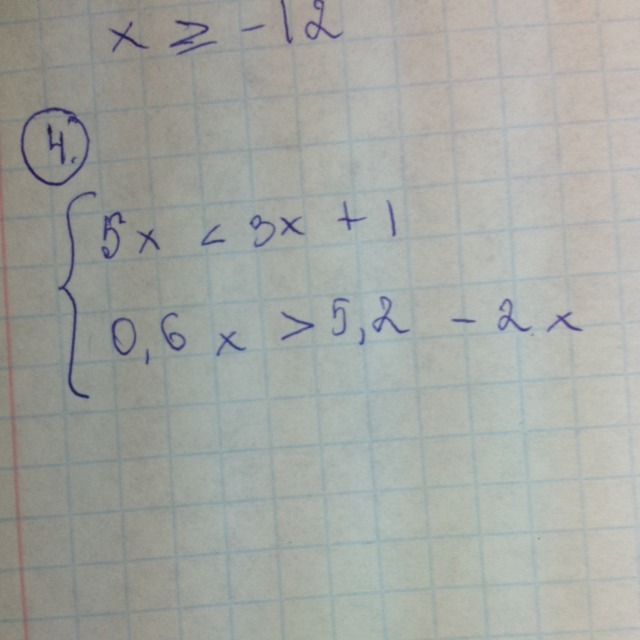 x ≥ -12
4.
5x < 3x + 1
0,6x > 5,2 - 2x